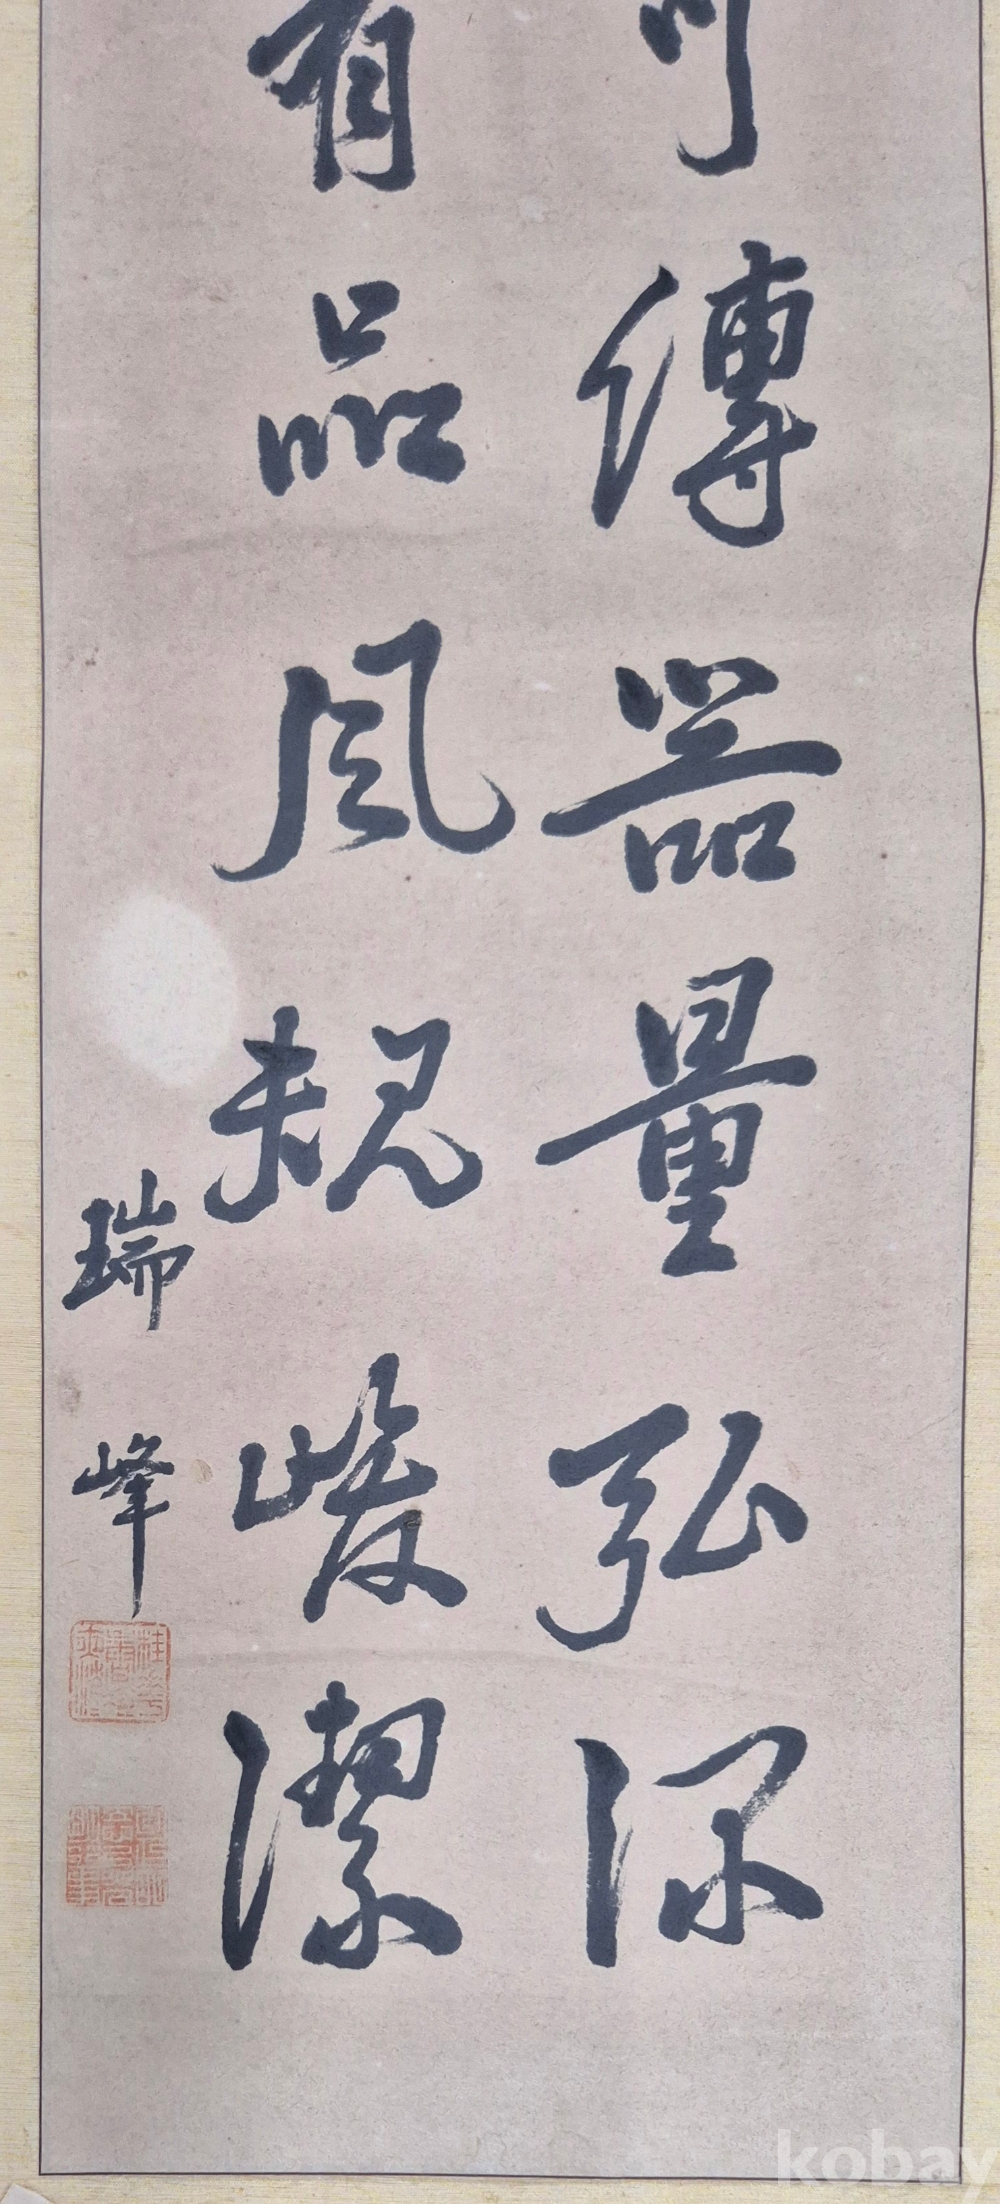 傳器量弘深
有品風規峻潔
瑞峰
kobay